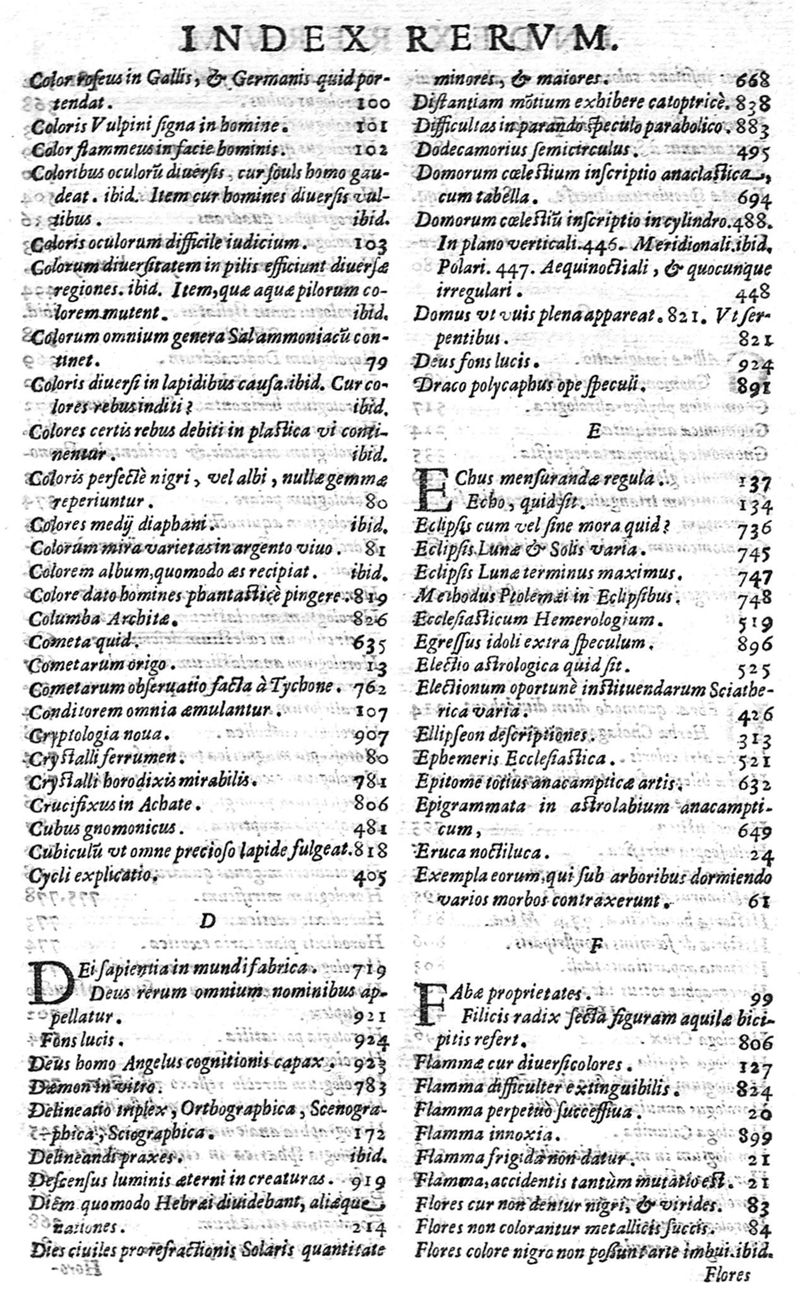 INDEX RERVM.
Color roseus in Gallis, & Germanis quid por-
tendat. 100
Coloris Vulpini signa in homine. 101
Color flammeus in facie hominis. 102
Coloribus oculorũ diversis, cur solus homo gau-
deat. ibid. Item cur homines diversis vul-
tibus. ibid.
Coloris oculorum difficile iudicium. 103
Colorum diversitatem in pilis efficiunt diversæ
regiones. ibid. Item, quæ aquæ pilorum co-
lorem mutent. ibid.
Colorum omnium genera Sal ammoniacũ con-
tinet. 79
Coloris diversi in lapidibus causa. ibid. Cur co-
lores rebus inditi? ibid.
Colores certis rebus debiti in plastica vi conti-
nentur. ibid.
Coloris perfectè nigri, vel albi, nullæ gemmæ
reperiuntur. 80
Colores medij diaphani. ibid.
Colorum mira varietas in argento vivo. 81
Colorem album, quomodo æs recipiat. ibid.
Colore dato homines phantasticè pingere. 819
Columba Architæ. 826
Cometa quid. 635
Cometarum origo. 13
Cometarum observatio facta à Tychone. 762
Conditorem omnia æmulantur. 107
Cryptologia nova. 907
Crystalli ferrumen. 80
Crystalli horodixis mirabilis. 781
Crucifixus in Achate. 806
Cubus gnomonicus. 481
Cubiculũ vt omne precioso lapide fulgeat. 818
Cycli explicatio. 405
D
DEi sapientia in mundi fabrica. 719
Deus rerum omnium nominibus ap-
pellatur. 921
Fons lucis. 924
Deus homo Angelus cognitionis capax. 923
Dæmon in vitro. 783
Delineatio triplex, Orthographica, Scenogra-
phica, Sciographica. 172
Delineandi praxes. ibid.
Descensus luminis æterni in creaturas. 919
Diem quomodo Hebræi dividebant, aliæque
nationes. 214
Dies civiles pro refractionis Solaris quantitate
minores, & maiores. 668
Distantiam mõtium exhibere catoptricè. 838
Difficultas in parando speculo parabolico. 883
Dodecamorius semicirculus. 495
Domorum cœlestium inscriptio anaclastica,
cum tabella. 694
Domorum cœlestiũ inscriptio in cylindro. 488.
In plano verticali. 446. Meridionali. ibid.
Polari. 447. Aequinoctiali, & quocunque
irregulari. 448
Domus vt vuis plena appareat. 821. Vt ser-
pentibus. 821
Deus fons lucis. 924
Draco polycaphus ope speculi. 891
E
EChus mensurandæ regula. 137
Echo, quid sit. 134
Eclipsis cum vel sine mora quid? 736
Eclipsis Lunæ & Solis varia. 745
Eclipsis Lunæ terminus maximus. 747
Methodus Ptolemæi in Eclipsibus. 748
Ecclesiasticum Hemerologium. 519
Egressus idoli extra speculum. 896
Electio astrologica quid sit. 525
Electionum oportunè instituendarum Sciathe-
rica varia. 426
Ellipseon descriptiones. 313
Ephemeris Ecclesiastica. 521
Epitome totius anacampticæ artis. 632
Epigrammata in astrolabium anacampti-
cum, 649
Eruca noctiluca. 24
Exempla eorum, qui sub arboribus dormiendo
varios morbos contraxerunt. 61
F
FAbæ proprietates. 99
Filicis radix secta figuram aquilæ bici-
pitis refert. 806
Flammæ cur diversicolores. 127
Flamma difficulter extinguibilis. 824
Flamma perpetuò successiva. 20
Flamma innoxia. 899
Flamma frigida non datur. 21
Flamma, accidentis tantùm mutatio est. 21
Flores cur non dentur nigri, & virides. 83
Flores non colorantur metallicis succis. 84
Flores colore nigro non possunt arte imbui. ibid.
Flores